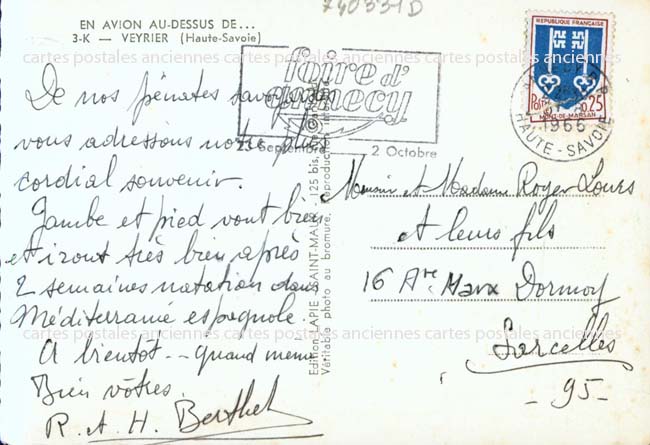 740331D
EN AVION AU-DESSUS DE...
3-K — VEYRIER (Haute-Savoie)
De nos pénates savoyards
vous adressons notre plus
cordial souvenir.
Jambe et pied vont bien
et iront très bien après
2 semaines natation dans
Méditerranée espagnole.
A bientôt -- quand même
Bien vôtres
R. et H. Berthet
foire d'
annecy
23 Septembre 2 Octobre
REPUBLIQUE FRANÇAISE
POSTES 0.25
MONT-DE-MARSAN
1966
HAUTE-SAVOIE
Edition LAPIE SAINT-MAUR
Véritable photo au bromure, reproduction
Monsieur et Madame Roger Loues
et leurs fils
16 Ave Marx Dormoy
Sarcelles
- 95 -
cartes postales anciennes cartes postales anciennes cartes postales anciennes
cartes postales anciennes cartes postales anciennes cartes postales anciennes
cartes postales anciennes cartes postales anciennes cartes postales anciennes